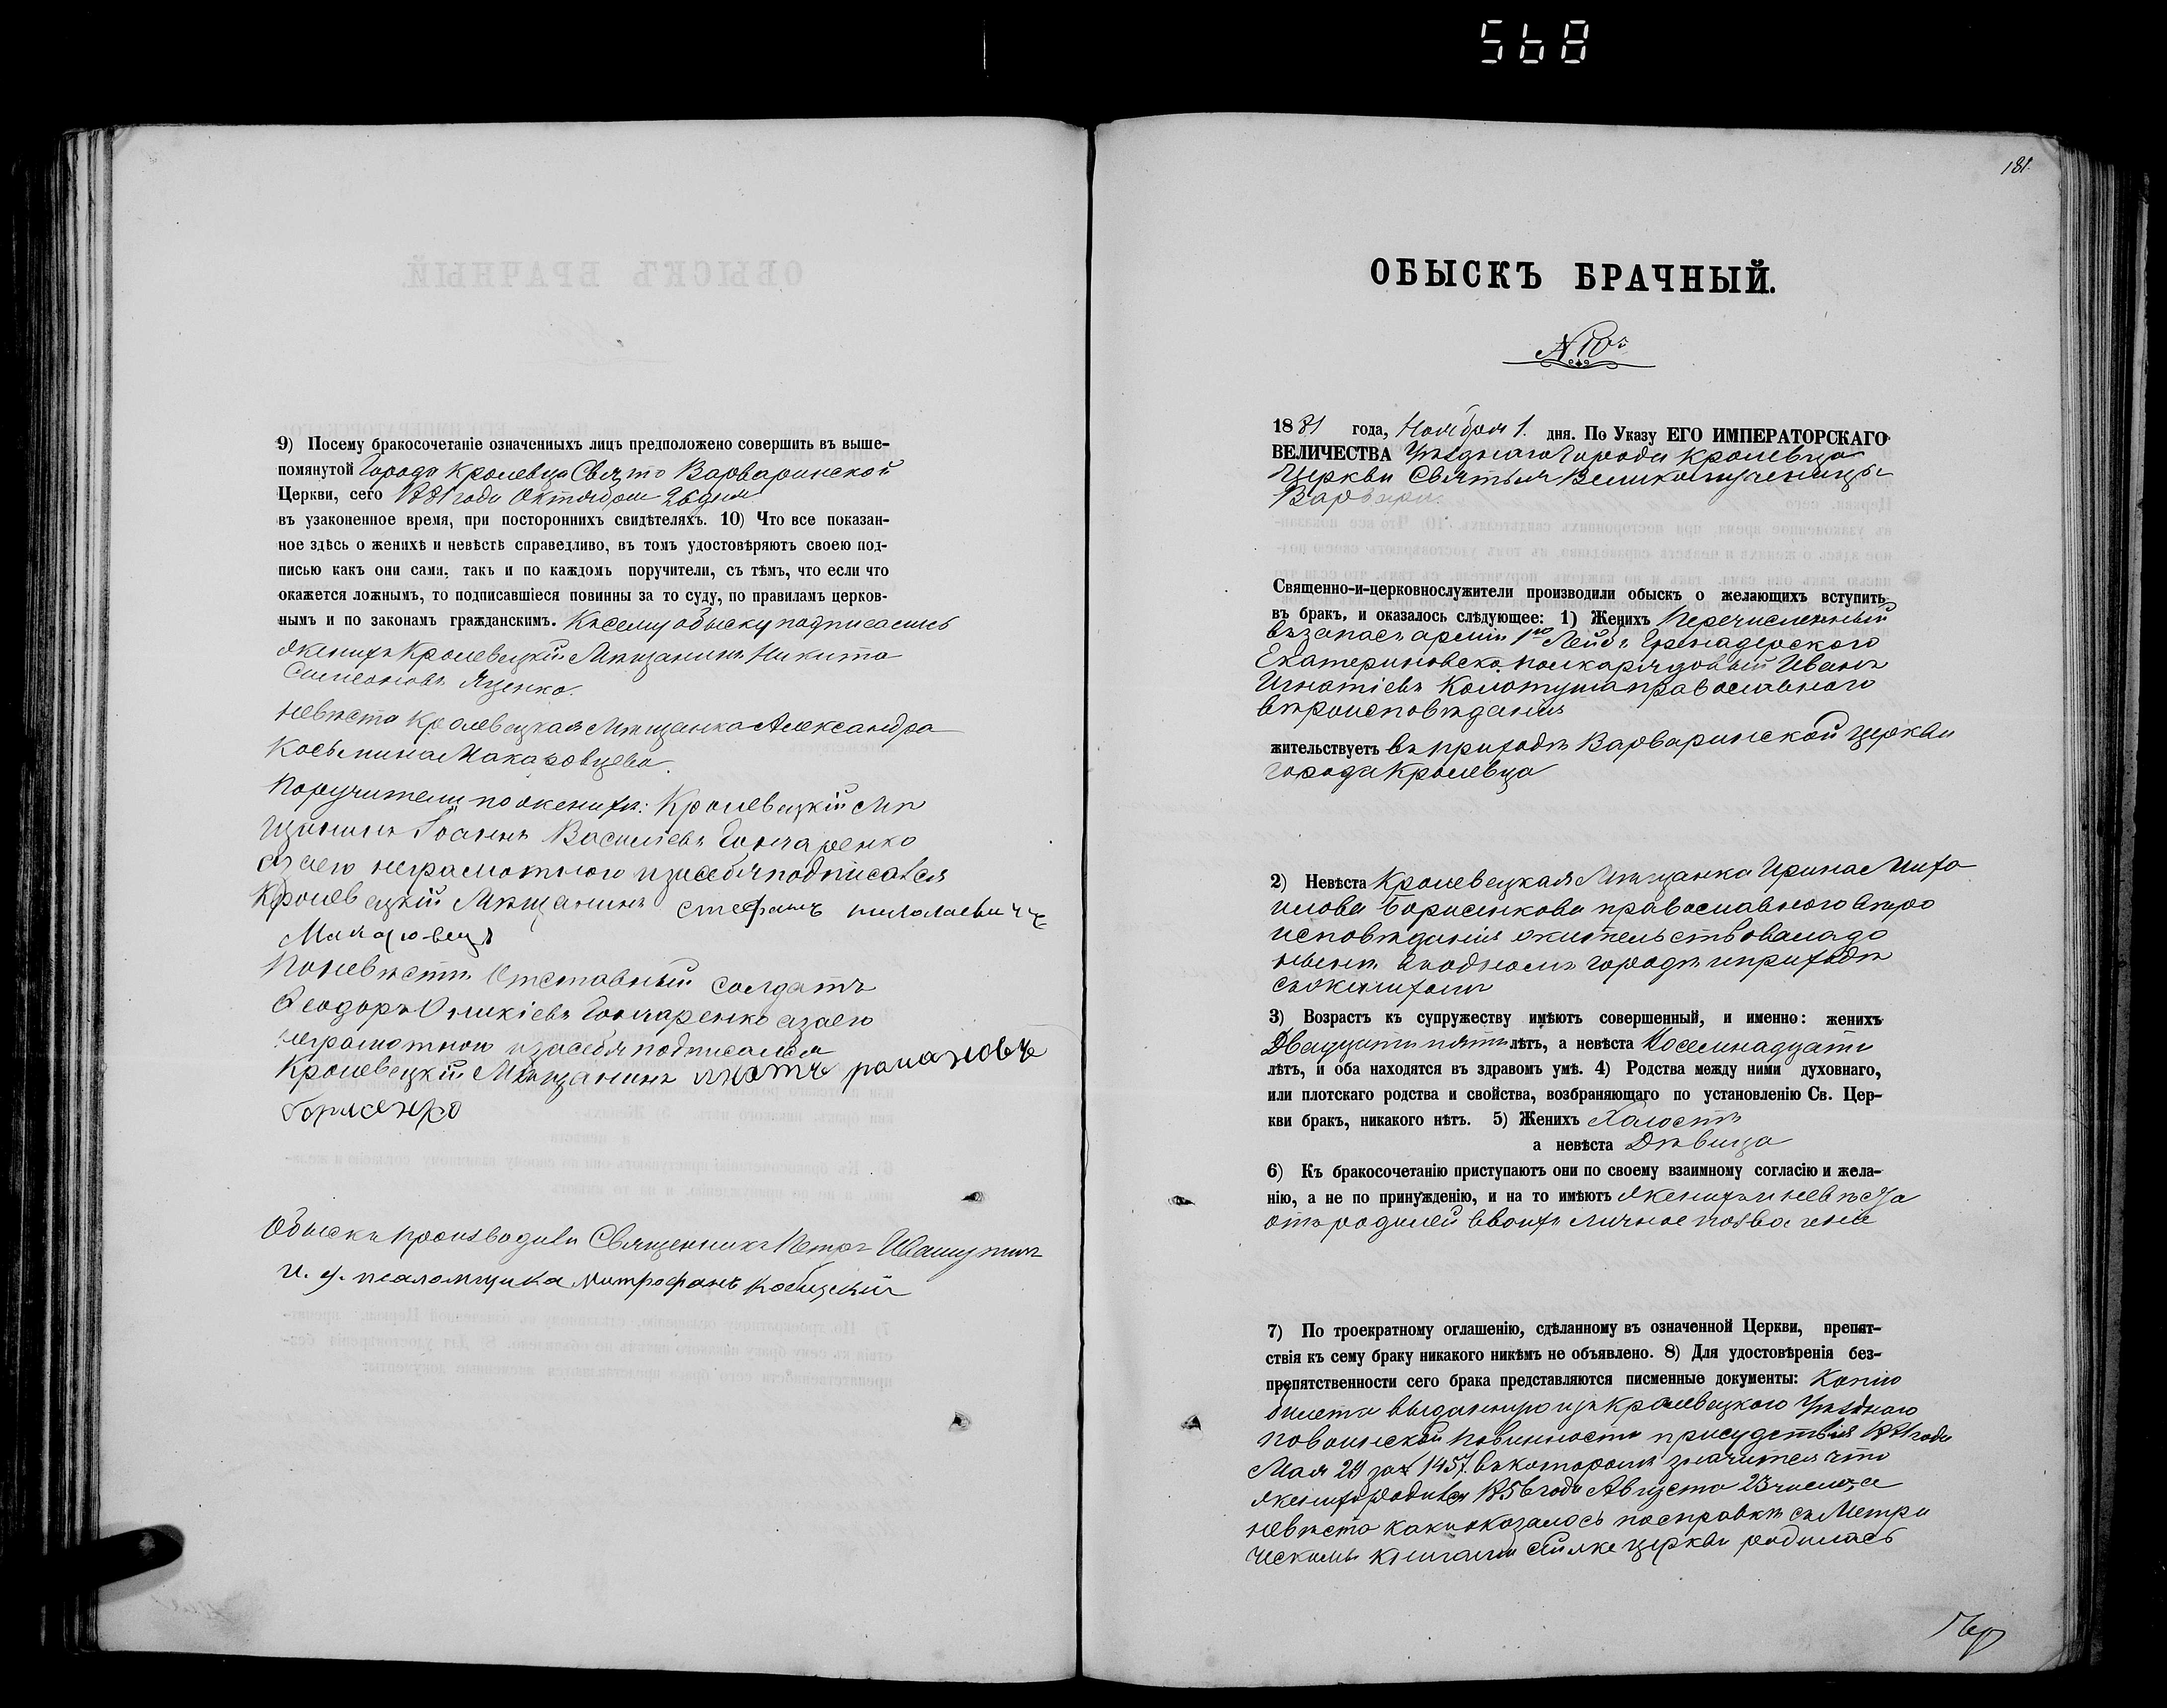 568
9) Посему бракосочетаніе означенныхъ лицъ предположено совершить въ выше-
помянутой Города Кролевца Свято Варваринской
Церкви, сего 1881 года Октября 26 дня
въ узаконенное время, при постороннихъ свидѣтеляхъ. 10) Что все показан-
ное здѣсь о женихѣ и невѣстѣ справедливо, въ томъ удостовѣряютъ своею под-
писью какъ они сами, такъ и по каждомъ поручители, съ тѣмъ, что если что
окажется ложнымъ, то подписавшіеся повинны за то суду, по правиламъ церков-
нымъ и по законамъ гражданскимъ. Къ сему обыску подписались
Женихъ Кролевецкій Мѣщанинъ Никита
Симеоновъ Яценко.
Невѣста Кролевецкая Мѣщанка Александра
Косьмина Макаровцева.
Поручители по женихѣ: Кролевецкій Мѣ
щанинъ Іоаннъ Василіевъ Гончаренко
а за его неграмотного и за себя подписался
Кролевецкій Мѣщанинъ Стефанъ николаевичъ
Макаровецъ
По невѣстѣ Отставный солдатъ
Ѳеодоръ Іоанникіевъ Гончаренко а за его
неграмотного и за себя подписался
Кролевецкій Мѣщанинъ романовъ
Обыскъ производили Священникъ Петръ
и. д. псаломщика Митрофанъ
181.
ОБЫСКЪ БРАЧНЫЙ.
1881 года, Ноября 1. дня. По Указу ЕГО ИМПЕРАТОРСКАГО
ВЕЛИЧЕСТВА Уѣзднаго Города Кролевца
Церкви Святыя Великомученицы
Варвары.
Священно-и-церковнослужители производили обыскъ о желающихъ вступить
въ бракъ, и оказалось слѣдующее: 1) Женихъ Перечисленный
въ запасъ арміи 1го Лейбъ Гренадерского
Екатериновско. полка рядовый Иванъ
Игнатіевъ Колотуша православного
вѣроисповѣданія
жительствуетъ въ приходѣ Варваринской церкви
города Кролевца
2) Невѣста Кролевецкая Мѣщанка Ирина Миха
илова Борисенкова православного вѣро
исповѣданія жительствовала до
нынѣ въ одномъ городѣ и приходѣ
съ женихомъ
3) Возрастъ къ супружеству имѣютъ совершенный, и именно: женихъ
Двадцати пяти лѣтъ, а невѣста Восемнадцати
лѣтъ, и оба находятся въ здравомъ умѣ. 4) Родства между ними духовнаго,
или плотскаго родства и свойства, возбраняющаго по установленію Св. Цер-
кви бракъ, никакого нѣтъ. 5) Женихъ Холостъ
а невѣста Дѣвица
6) Къ бракосочетанію приступаютъ они по своему взаимному согласію и жела-
нію, а не по принужденію, и на то имѣютъ Женихъ и невѣста
отъ родителей своихъ личное позволеніе
7) По троекратному оглашенію, сдѣланному въ означенной Церкви, препят-
ствія къ сему браку никакого никѣмъ не объявлено. 8) Для удостовѣренія без-
препятственности сего брака представляются писменные документы: Копію
билета выданную изъ Кролевецкого Уѣзднаго
по воинской повинности присудствія 1881 года
Мая 29 за № 1457. въ которомъ значится что
женихъ родился 1856 года Августа 23 числа, а
невѣста какъ оказалось по справкѣ съ Метри
ческими книгами сей же церкви родилась